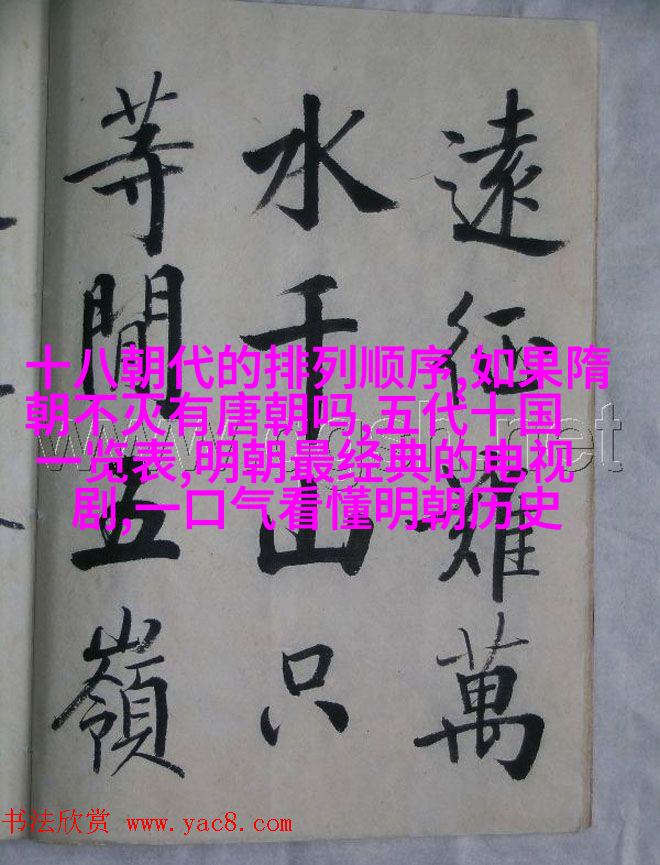 遠征難萬
水千山只
等閒五嶺
十八朝代的排列顺序,如果隋
朝不灭有唐朝吗,五代十国
一览表,明朝最经典的电视
剧,一口气看懂明朝历史
书法欣赏 www.yac8.com